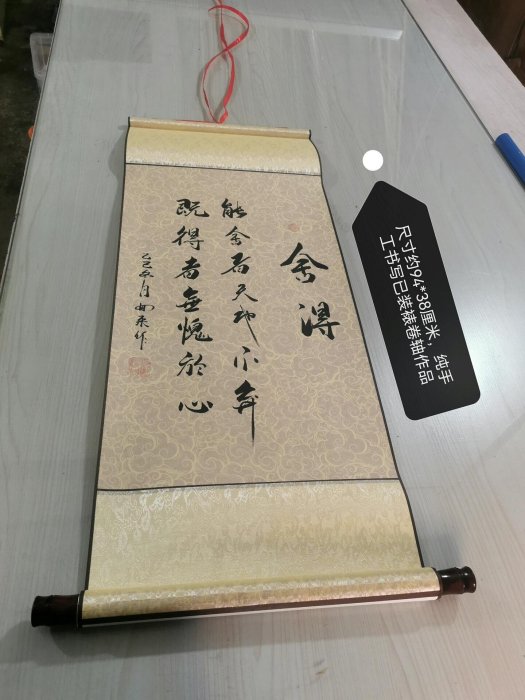 舍得
能舍者天地不弃
既得者無愧於心
乙巳 月 作
尺寸约94*38厘米，纯手
工书写已装裱卷轴作品